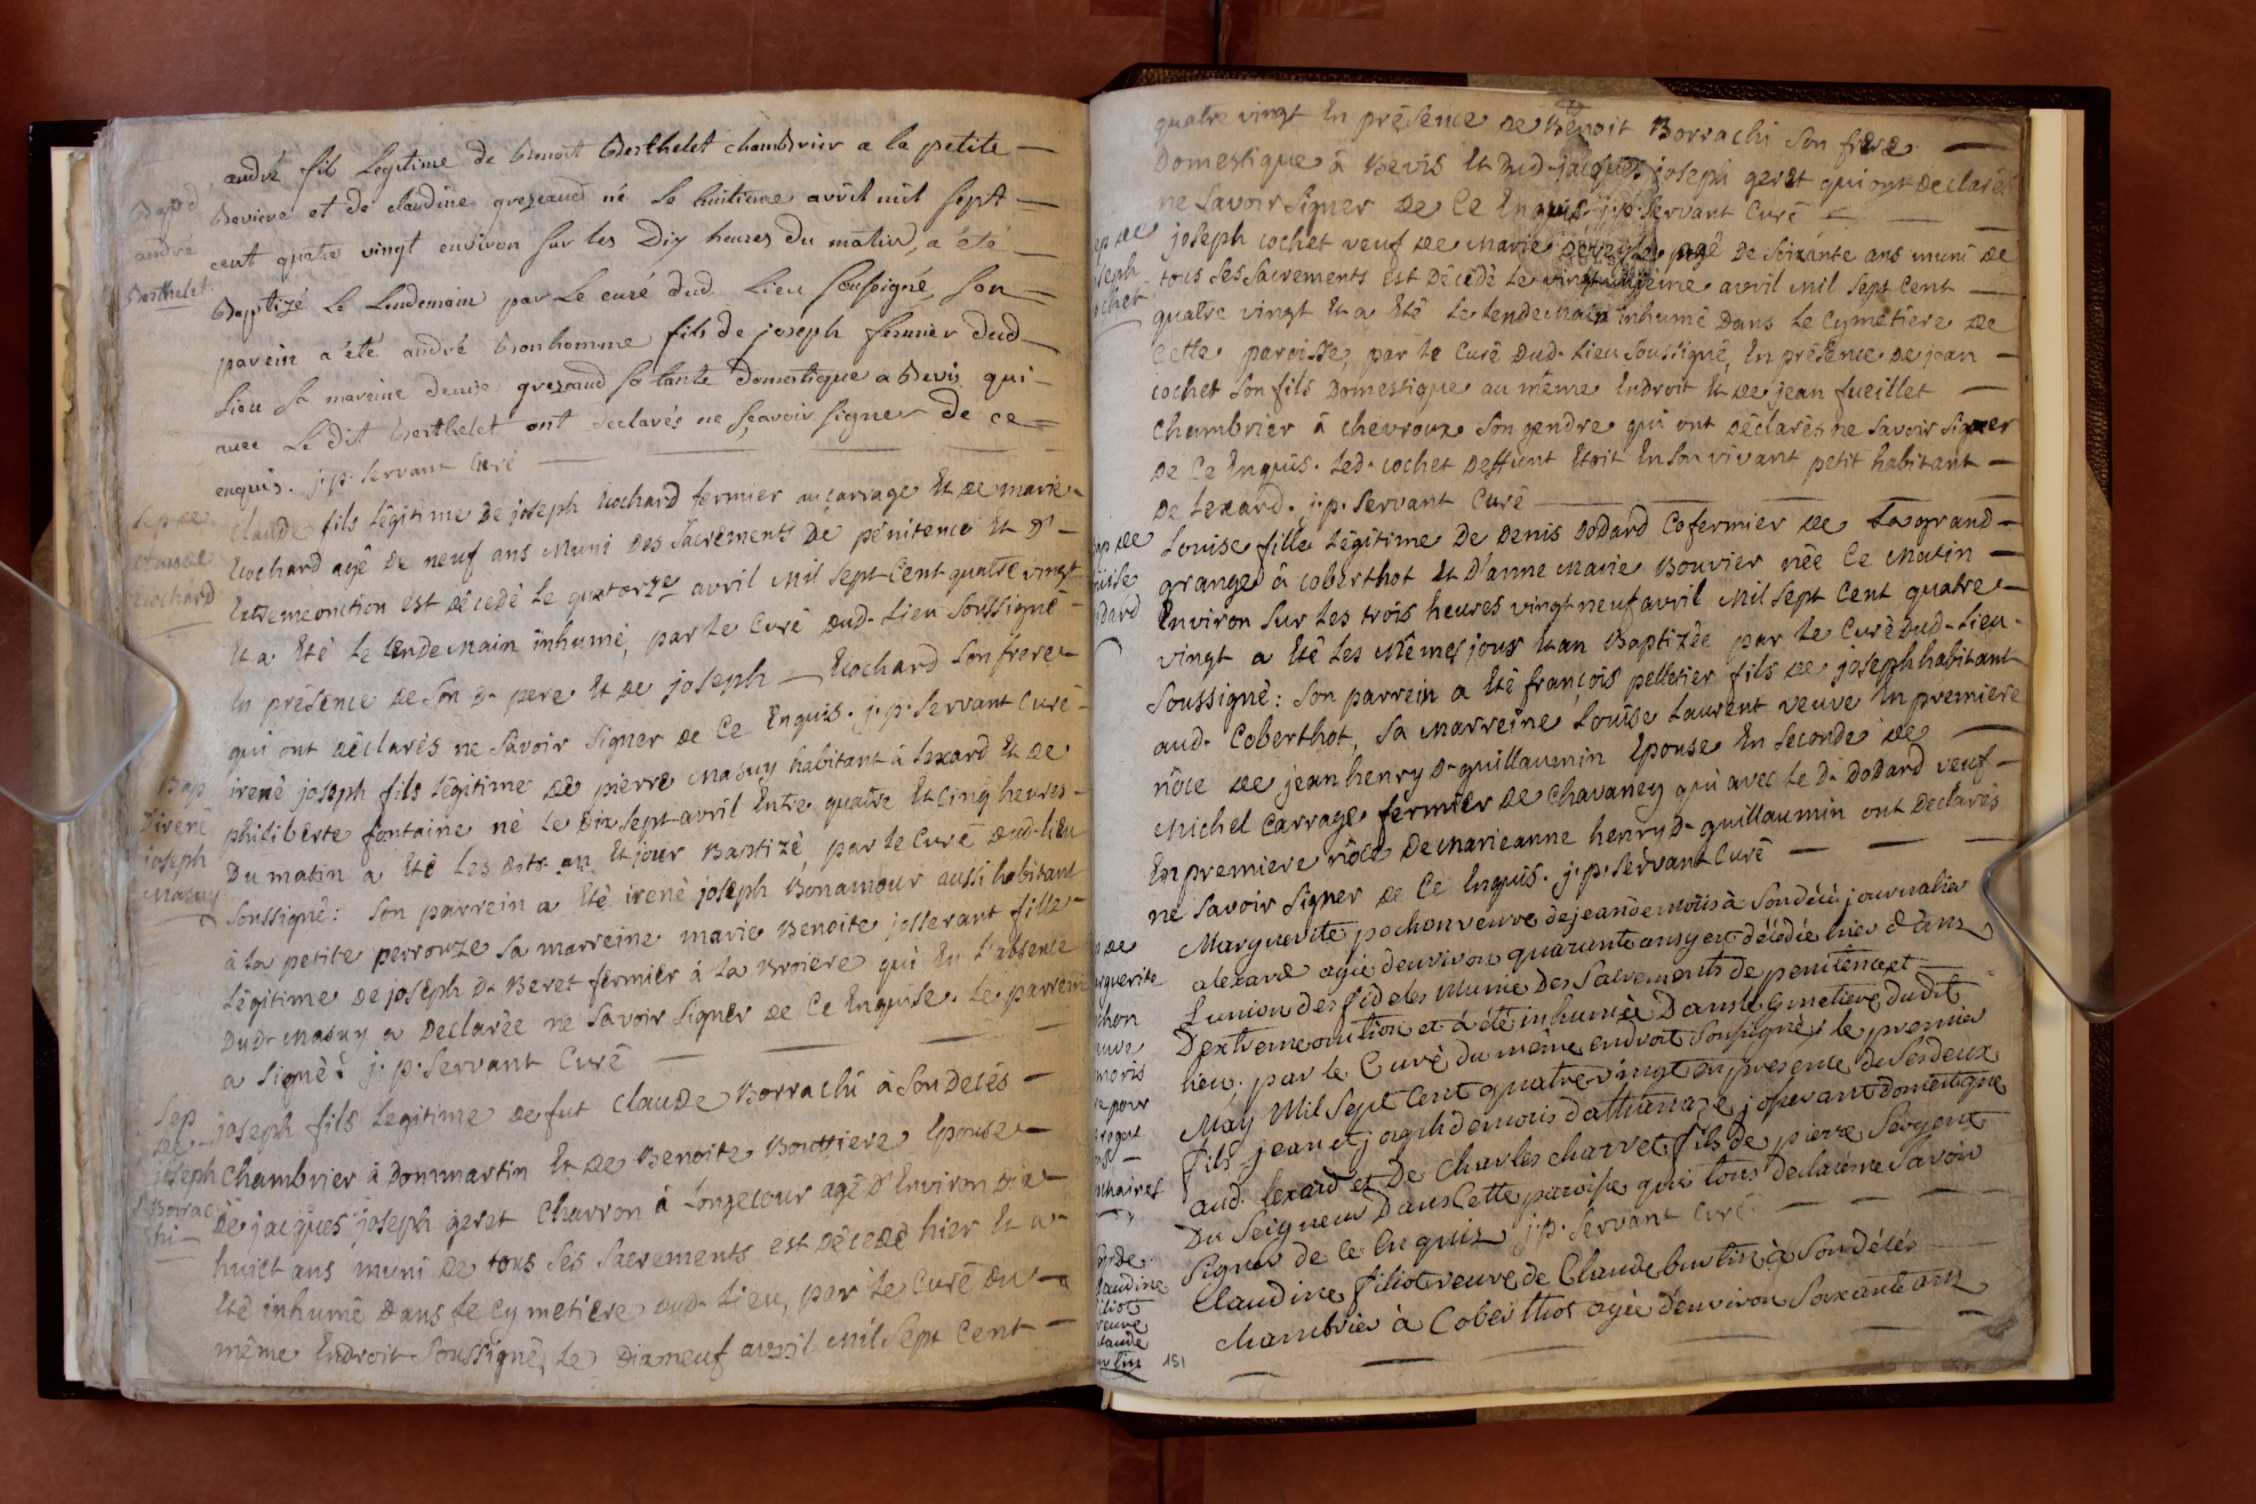 Bapt d
andré
Berthelet
andré fils Legitime de Benoit Berthelet chambrier a la petite
Beviere et de claudine grezeaud né le huitieme avril mil sept
cent quatre vingt environ sur les Dix heures du matin, a été
Baptizé le Lendemain par Le curé dud. Lieu soussigné, son
parein a été andré Bonhomme fils de joseph fermier dud
Lieu sa mareine denise grezeaud sa tante domestique a Bevis qui
avec Le dit Berthelet ont declarés ne sçavoir signer de ce
enquis. j. p. servant Curé
Sep de
claude
cochard
Claude fils Légitime De joseph cochard fermier au carrage Et de marie
cochard agé De neuf ans Muni des Sacréments De pénitence Et D'
Extremeonction est décédé Le quatorze avril Mil Sept Cent quatre vingt
Et a Eté Le lendemain inhumé, par le Curé dud. Lieu Soussigné
En présence de Son d. pere Et de joseph cochard Son frere
qui ont déclarés ne Savoir Signer de Ce Enquis. j. p. Servant Curé
Bap
d'irené
joseph
Masuy
irené joseph fils Légitime de pierre Masuy habitant à Lexard Et de
philiberte fontaine né Le Dix Sept avril Entre quatre Et Cinq heures
Du matin a Eté Les dits an Et jour Baptizé, par le Curé dud. lieu
Soussigné: Son parrein a Eté irené joseph Bonamour aussi habitant
à la petite perrouze Sa marreine marie Benoite josserant fille
Légitime De joseph D. Beret fermier à la Broiere qui En l'absence
Dud. Masuy a Declarée ne Savoir Signer de Ce Enquise. Le parrein
a Signé. j. p. Servant Curé
Sep
de
joseph
Borrac
hi
joseph fils Légitime de fut Claude Borrachi à Son Decés
Chambrier à Dommartin Et de Benoite Bouttiere Epouse
De jacques joseph geret Charron à Longecour agé D'Environ Dix
huict ans muni de tous Ses Sacrements est décédé hier Et a
Eté inhumé Dans Le Cymetiere aud. Lieu, par le Curé du
même Endroit Soussigné, Le Dixneuf avril Mil Sept Cent
quatre vingt En présence de Benoit Borrachi Son frere
Domestique à Bevis Et Dud. jacques joseph geret qui ont Declarés
ne Savoir Signer de Ce Enquis. j. p. Servant Curé
ep de
oseph
ochet
joseph cochet veuf de Marie agé De Soixante ans muni de
tous Ses Sacrements est Décédé Le avril Mil Sept Cent
quatre vingt Et a Eté Le Lendemain inhumé Dans Le Cymetiere de
Cette paroisse, par le Curé Dud. Lieu Soussigné, En présence De jean
cochet Son fils Domestique au même Endroit Et de jean fueillet
Chambrier à Chevroux Son gendre qui ont Déclarés ne Savoir Signer
De Ce Enquis. Led. cochet Deffunt Etoit En Son vivant petit habitant
De Lexard. j. p. Servant Curé
ap de
ouise
odard
Louise fille Légitime De Denis Dodard Cofermier de La grand
grange à coberthot Et D'anne Marie Bouvier née Ce Matin
Environ Sur Les trois heures vingt neuf avril Mil Sept Cent quatre
vingt a Eté Les Mêmes jour Et an Baptizée par Le Curé dud. Lieu
Soussigné: Son parrein a Eté françois pelletier fils de joseph habitant
aud. Coberthot, Sa Marreine Louise Laurent veuve En premiere
nôce de jean henry D. guillaumin Epouse En Seconde de
Michel Carrage fermier De Chavaney qui avec Le D. Dodard veuf
En premiere nôce De Marieanne henry D. guillaumin ont Declarés
ne Savoir Signer de Ce Enquis. j. p. Servant Curé
p de
arguerite
chon
euve
moris
Marguerite pochon veuve de jean demoris à Son décé journalier
a lexard agée denviron quarante ans y est décédée hier dans
Lunion des fideles Munie Des Sacrements de penitence et
D'extremeonction et a été inhumée Dans le Cymetiere dudit
lieu. par le Curé du même endroit Soussigné; le premier
May Mil Sept Cent quatre vingt en presence de Ses deux
fils jean et joseph demoris josserant domestique
aud. lexard et De Charles charvet fils de pierre Sergent
Du Seigneur Dans Cette paroisse qui tous declaré ne Savoir
Signer de Ce Enquis j. p. Servant Curé
ep de
laudine
iliot
veuve
laude
Claudine filiot veuve de Claude butin à Son décés
chambrier à Coberthot agée d'environ Soixante ans
151